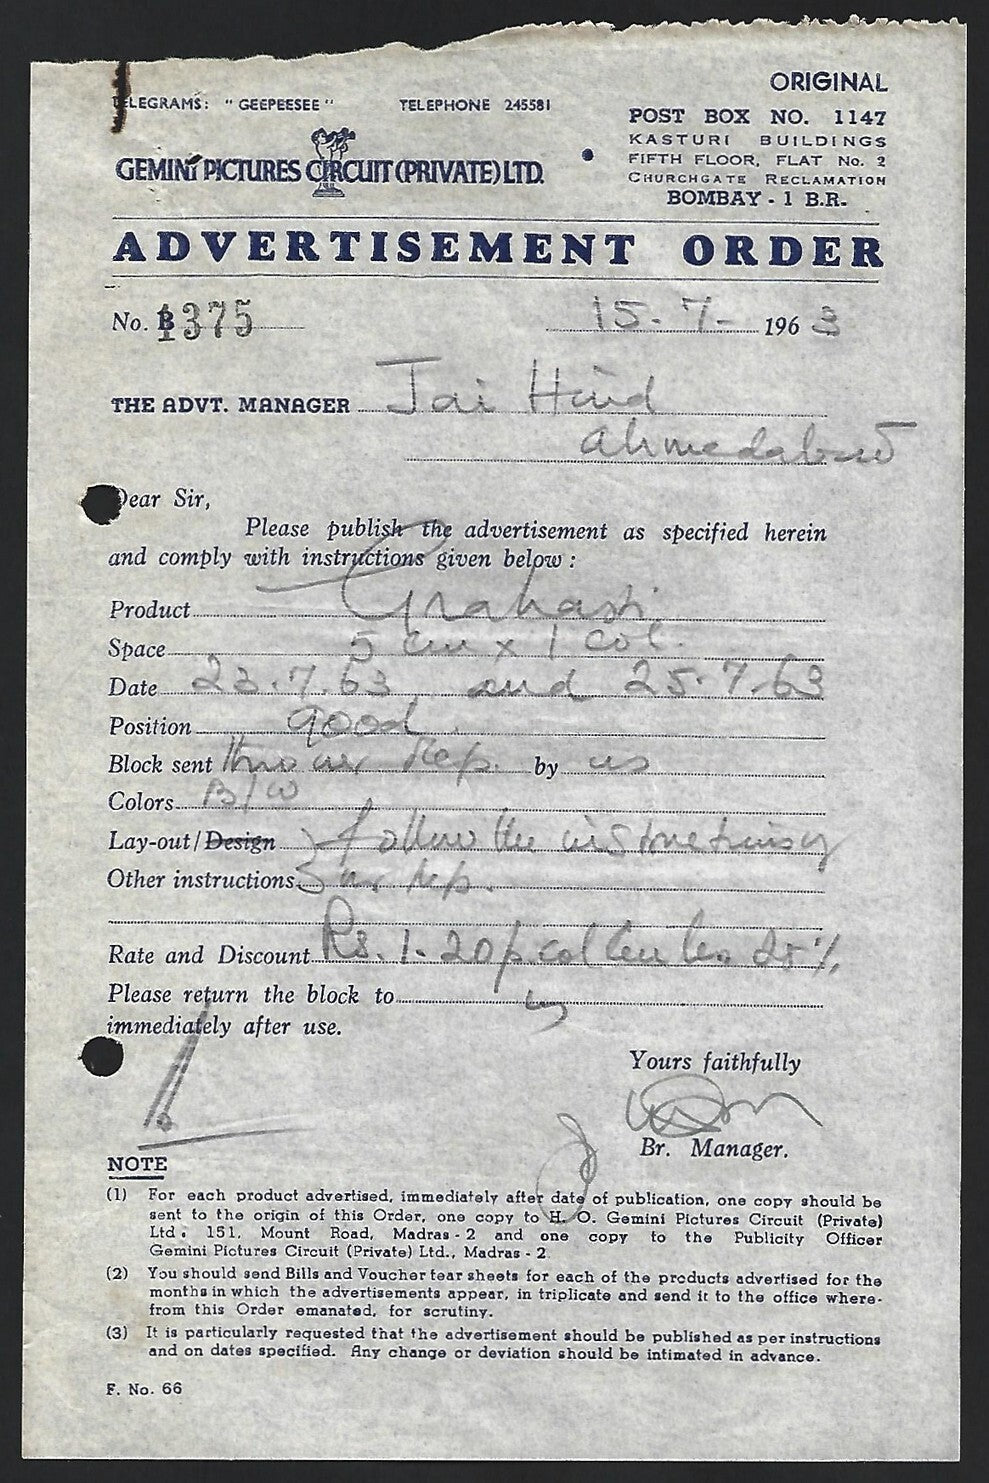 ORIGINAL
TELEGRAMS: "GEEPEESEE" TELEPHONE 245581
POST BOX NO. 1147
KASTURI BUILDINGS
FIFTH FLOOR, FLAT No. 2
CHURCHGATE RECLAMATION
BOMBAY - 1 B.R.
GEMINI PICTURES CIRCUIT (PRIVATE) LTD.
ADVERTISEMENT ORDER
No. 1375
15. 7- 1963
THE ADVT. MANAGER Jai Hind
Ahmedabad
Dear Sir,
Please publish the advertisement as specified herein
and comply with instructions given below :
Product Grahasti
Space 5 cm x 1 col.
Date 23.7.63 and 25.7.63
Position good
Block sent thro our Rep. by us
Colors B/W
Lay-out/Design } follow the instructions of
Other instructions } our rep.
Rate and Discount Rs. 1.20 p. col cm less 25%
Please return the block to us
immediately after use.
Yours faithfully
Br. Manager.
NOTE
(1) For each product advertised, immediately after date of publication, one copy should be
sent to the origin of this Order, one copy to H. O. Gemini Pictures Circuit (Private)
Ltd. 151, Mount Road, Madras - 2 and one copy to the Publicity Officer
Gemini Pictures Circuit (Private) Ltd., Madras - 2
(2) You should send Bills and Voucher tear sheets for each of the products advertised for the
months in which the advertisements appear, in triplicate and send it to the office where-
from this Order emanated, for scrutiny.
(3) It is particularly requested that the advertisement should be published as per instructions
and on dates specified. Any change or deviation should be intimated in advance.
F. No. 66